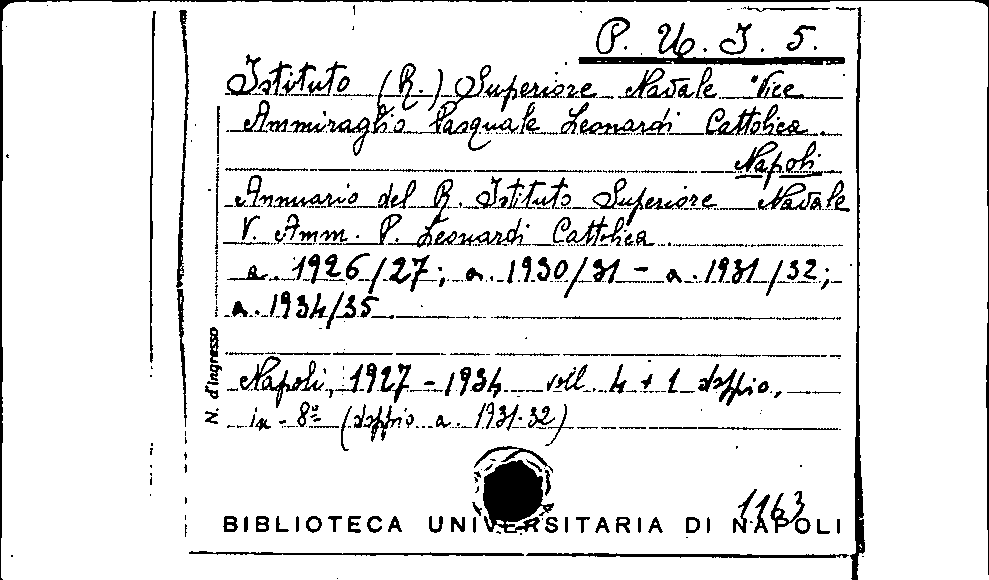 P. U. I. 5.
Istituto (R.) Superiore Navale "Vice
Ammiraglio Pasquale Leonardi Cattolica.
Napoli
Annuario del R. Istituto Superiore Navale
V. Amm. P. Leonardi Cattolica.
a. 1926/27; a. 1930/31 - a. 1931/32;
a. 1934/35.
N. d'ingresso
Napoli, 1927 - 1934 voll. 4 + 1 doppio,
in-8º (doppio a. 1931-32)
1163
BIBLIOTECA UNIVERSITARIA DI NAPOLI